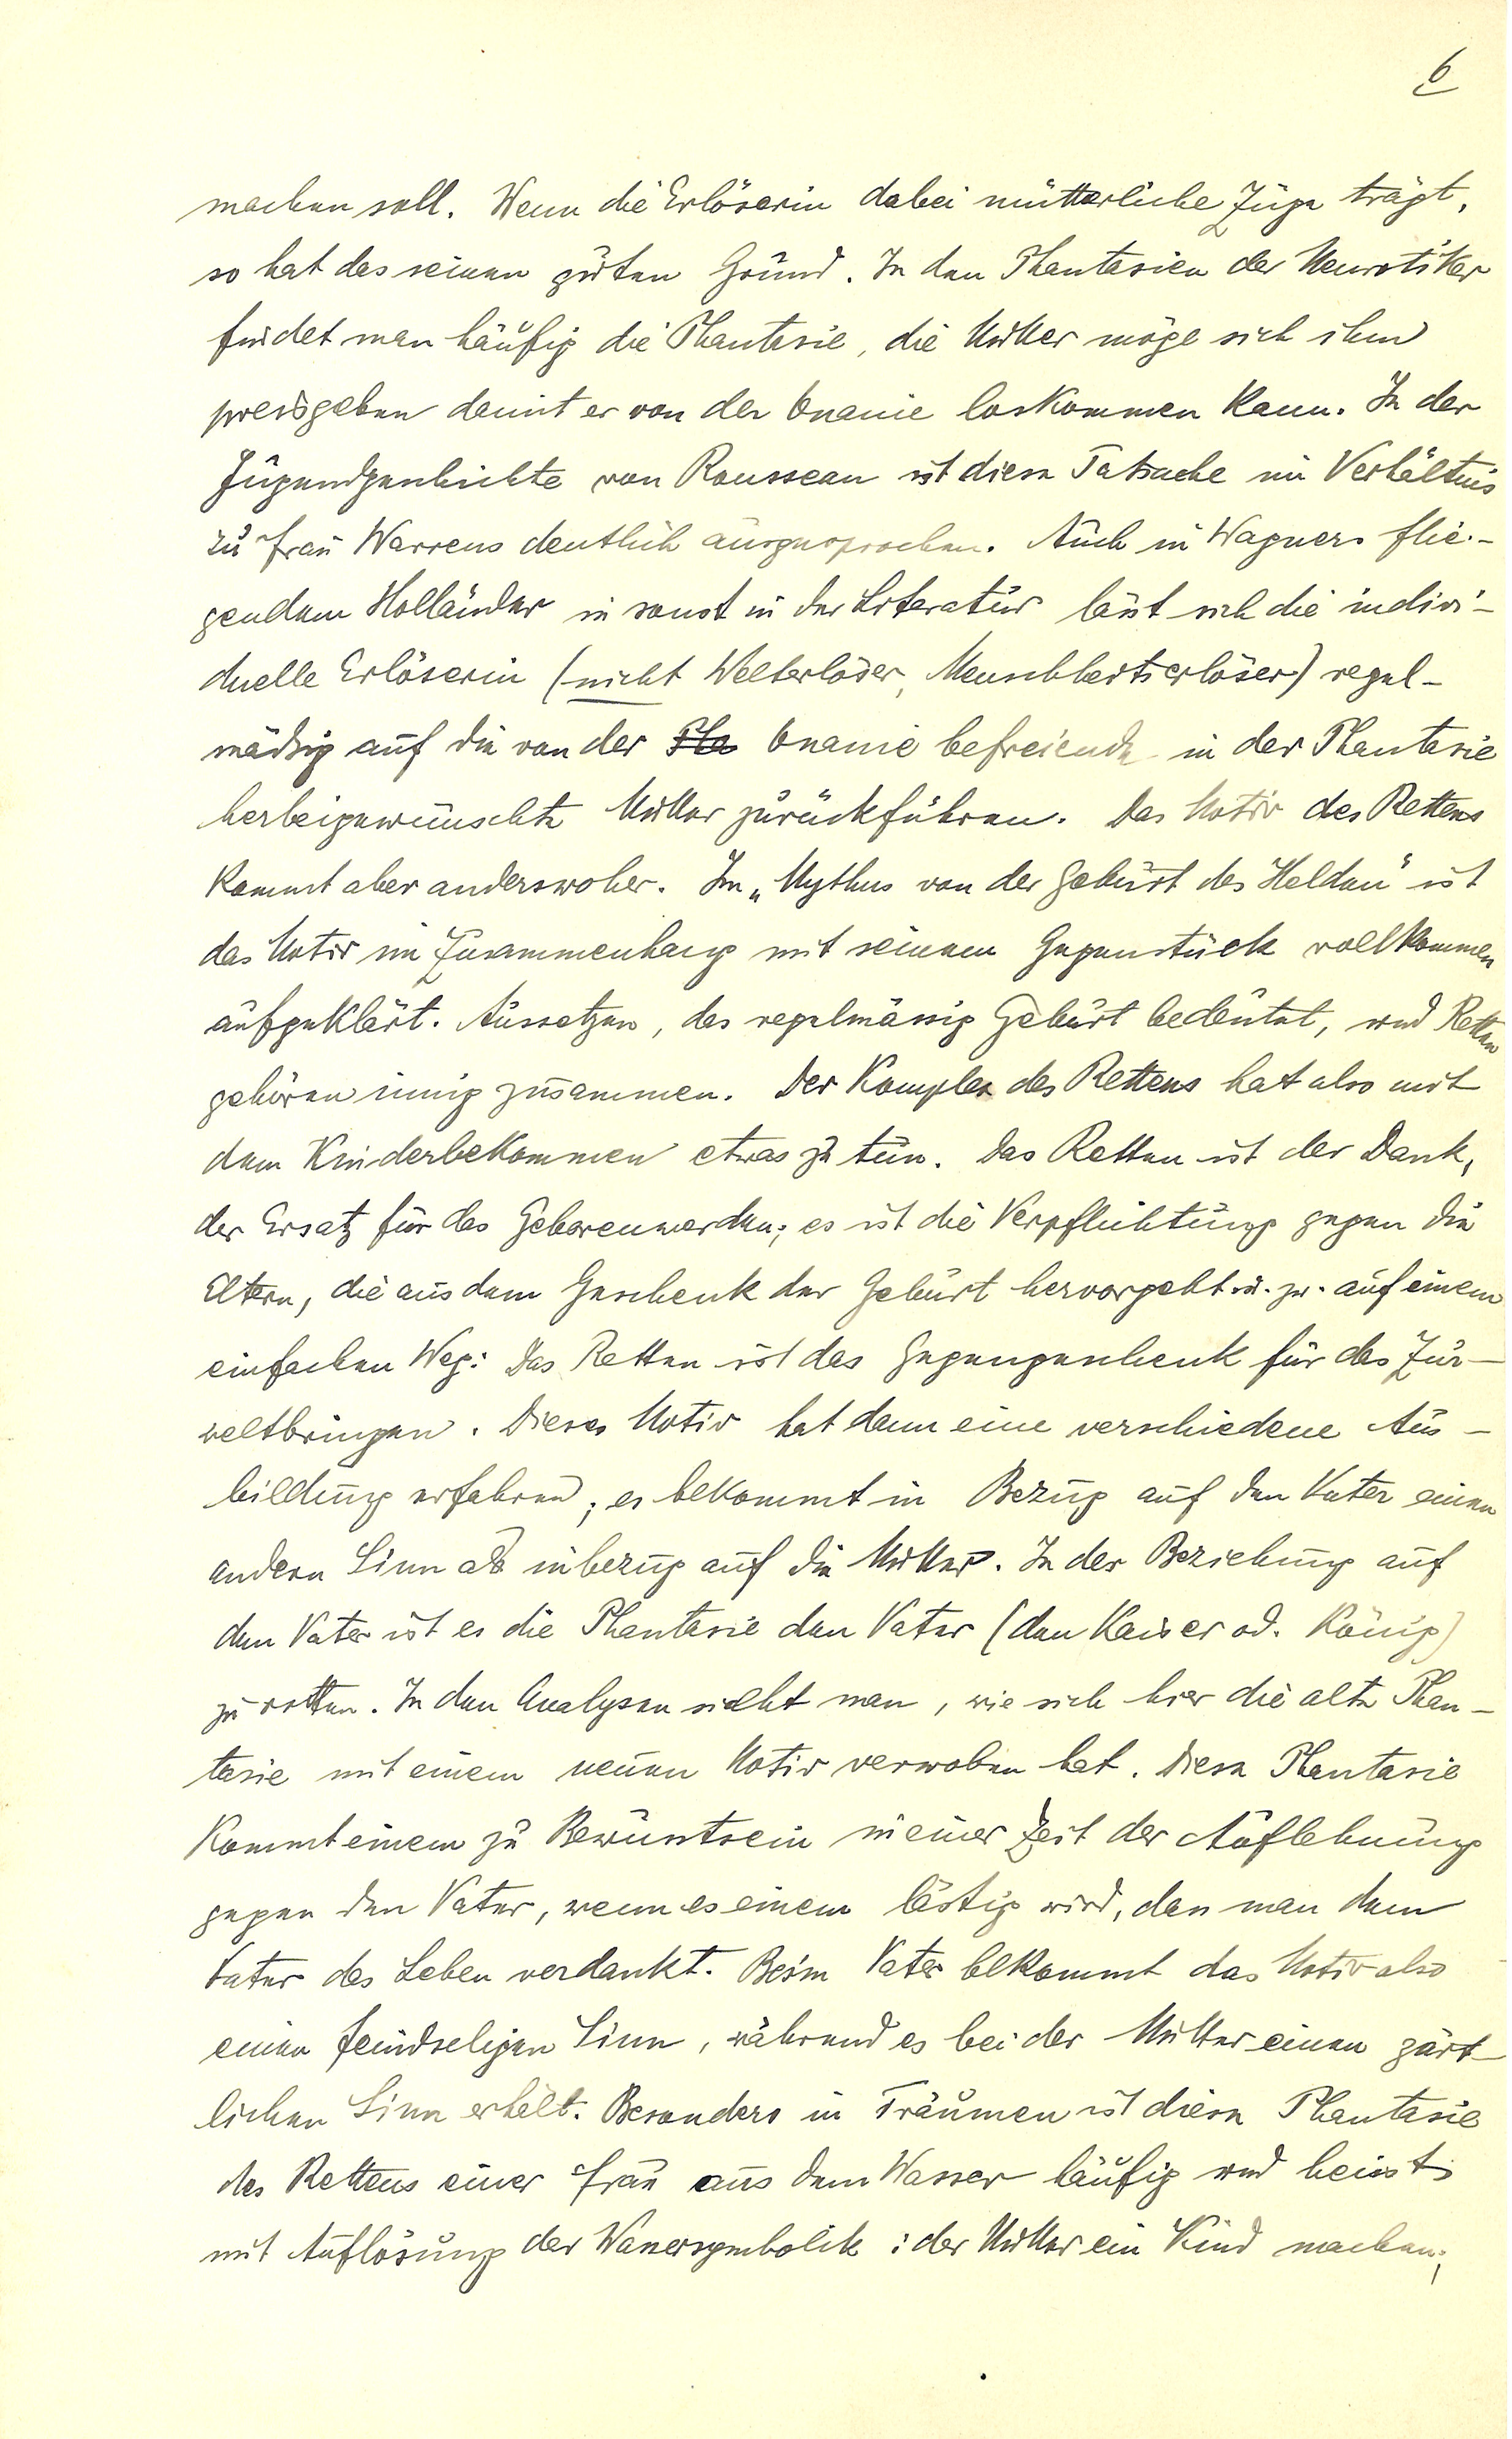 6
machen soll. Wenn die Erlöserin dabei mütterliche Züge trägt,
so hat das seinen guten Grund. In den Phantasien der Neurotiker
findet man häufig die Phantasie, die Mutter möge sich ihm
preisgeben damit er von der Onanie loskommen kann. In der
Jugendgeschichte von Rousseau ist diese Tatsache im Verhältnis
zu Frau Warrens deutlich ausgesprochen. Auch in Wagners flie-
gendem Holländer u sonst in der Literatur lässt sich die indivi-
duelle Erlöserin (nicht Welterlöser, Menschheitserlöser) regel-
mässig auf die von der Pha Onanie befreiende in der Phantasie
herbeigewünschte Mutter zurückführen. Das Motiv des Rettens
kommt aber anderswoher. Im „Mythus von der Geburt des Helden" ist
das Motiv im Zusammenhang mit seinem Gegenstück vollkommen
aufgeklärt. Aussetzen, das regelmässig Geburt bedeutet, und Retten
gehören innig zusammen. Der Komplex des Rettens hat also mit
dem Kinderbekommen etwas zu tun. Das Retten ist der Dank,
der Ersatz für das Geborenwerden; es ist die Verpflichtung gegen die
Eltern, die aus dem Geschenk der Geburt hervorgeht u. zw. auf einem
einfachen Weg: Das Retten ist das Gegengeschenk für das Zur-
weltbringen. Dieses Motiv hat dann eine verschiedene Aus-
bildung erfahren; es bekommt in Bezug auf den Vater einen
andern Sinn als inbezug auf die Mutter. In der Beziehung auf
den Vater ist es die Phantasie den Vater (den Kaiser od. König)
zu retten. In den Analysen sieht man, wie sich hier die alte Phan-
tasie mit einem neuen Motiv verwoben hat. Diese Phantasie
kommt einem zu Bewusstsein in einer Zeit der Auflehnung
gegen den Vater, wenn es einem lästig wird, dass man dem
Vater das Leben verdankt. Beim Vater bekommt das Motiv also
einen feindseligen Sinn, während es bei der Mutter einen zärt-
lichen Sinn erhält. Besonders in Träumen ist diese Phantasie
des Rettens einer Frau aus dem Wasser häufig und heisst
mit Auflösung der Wassersymbolik: der Mutter ein Kind machen;